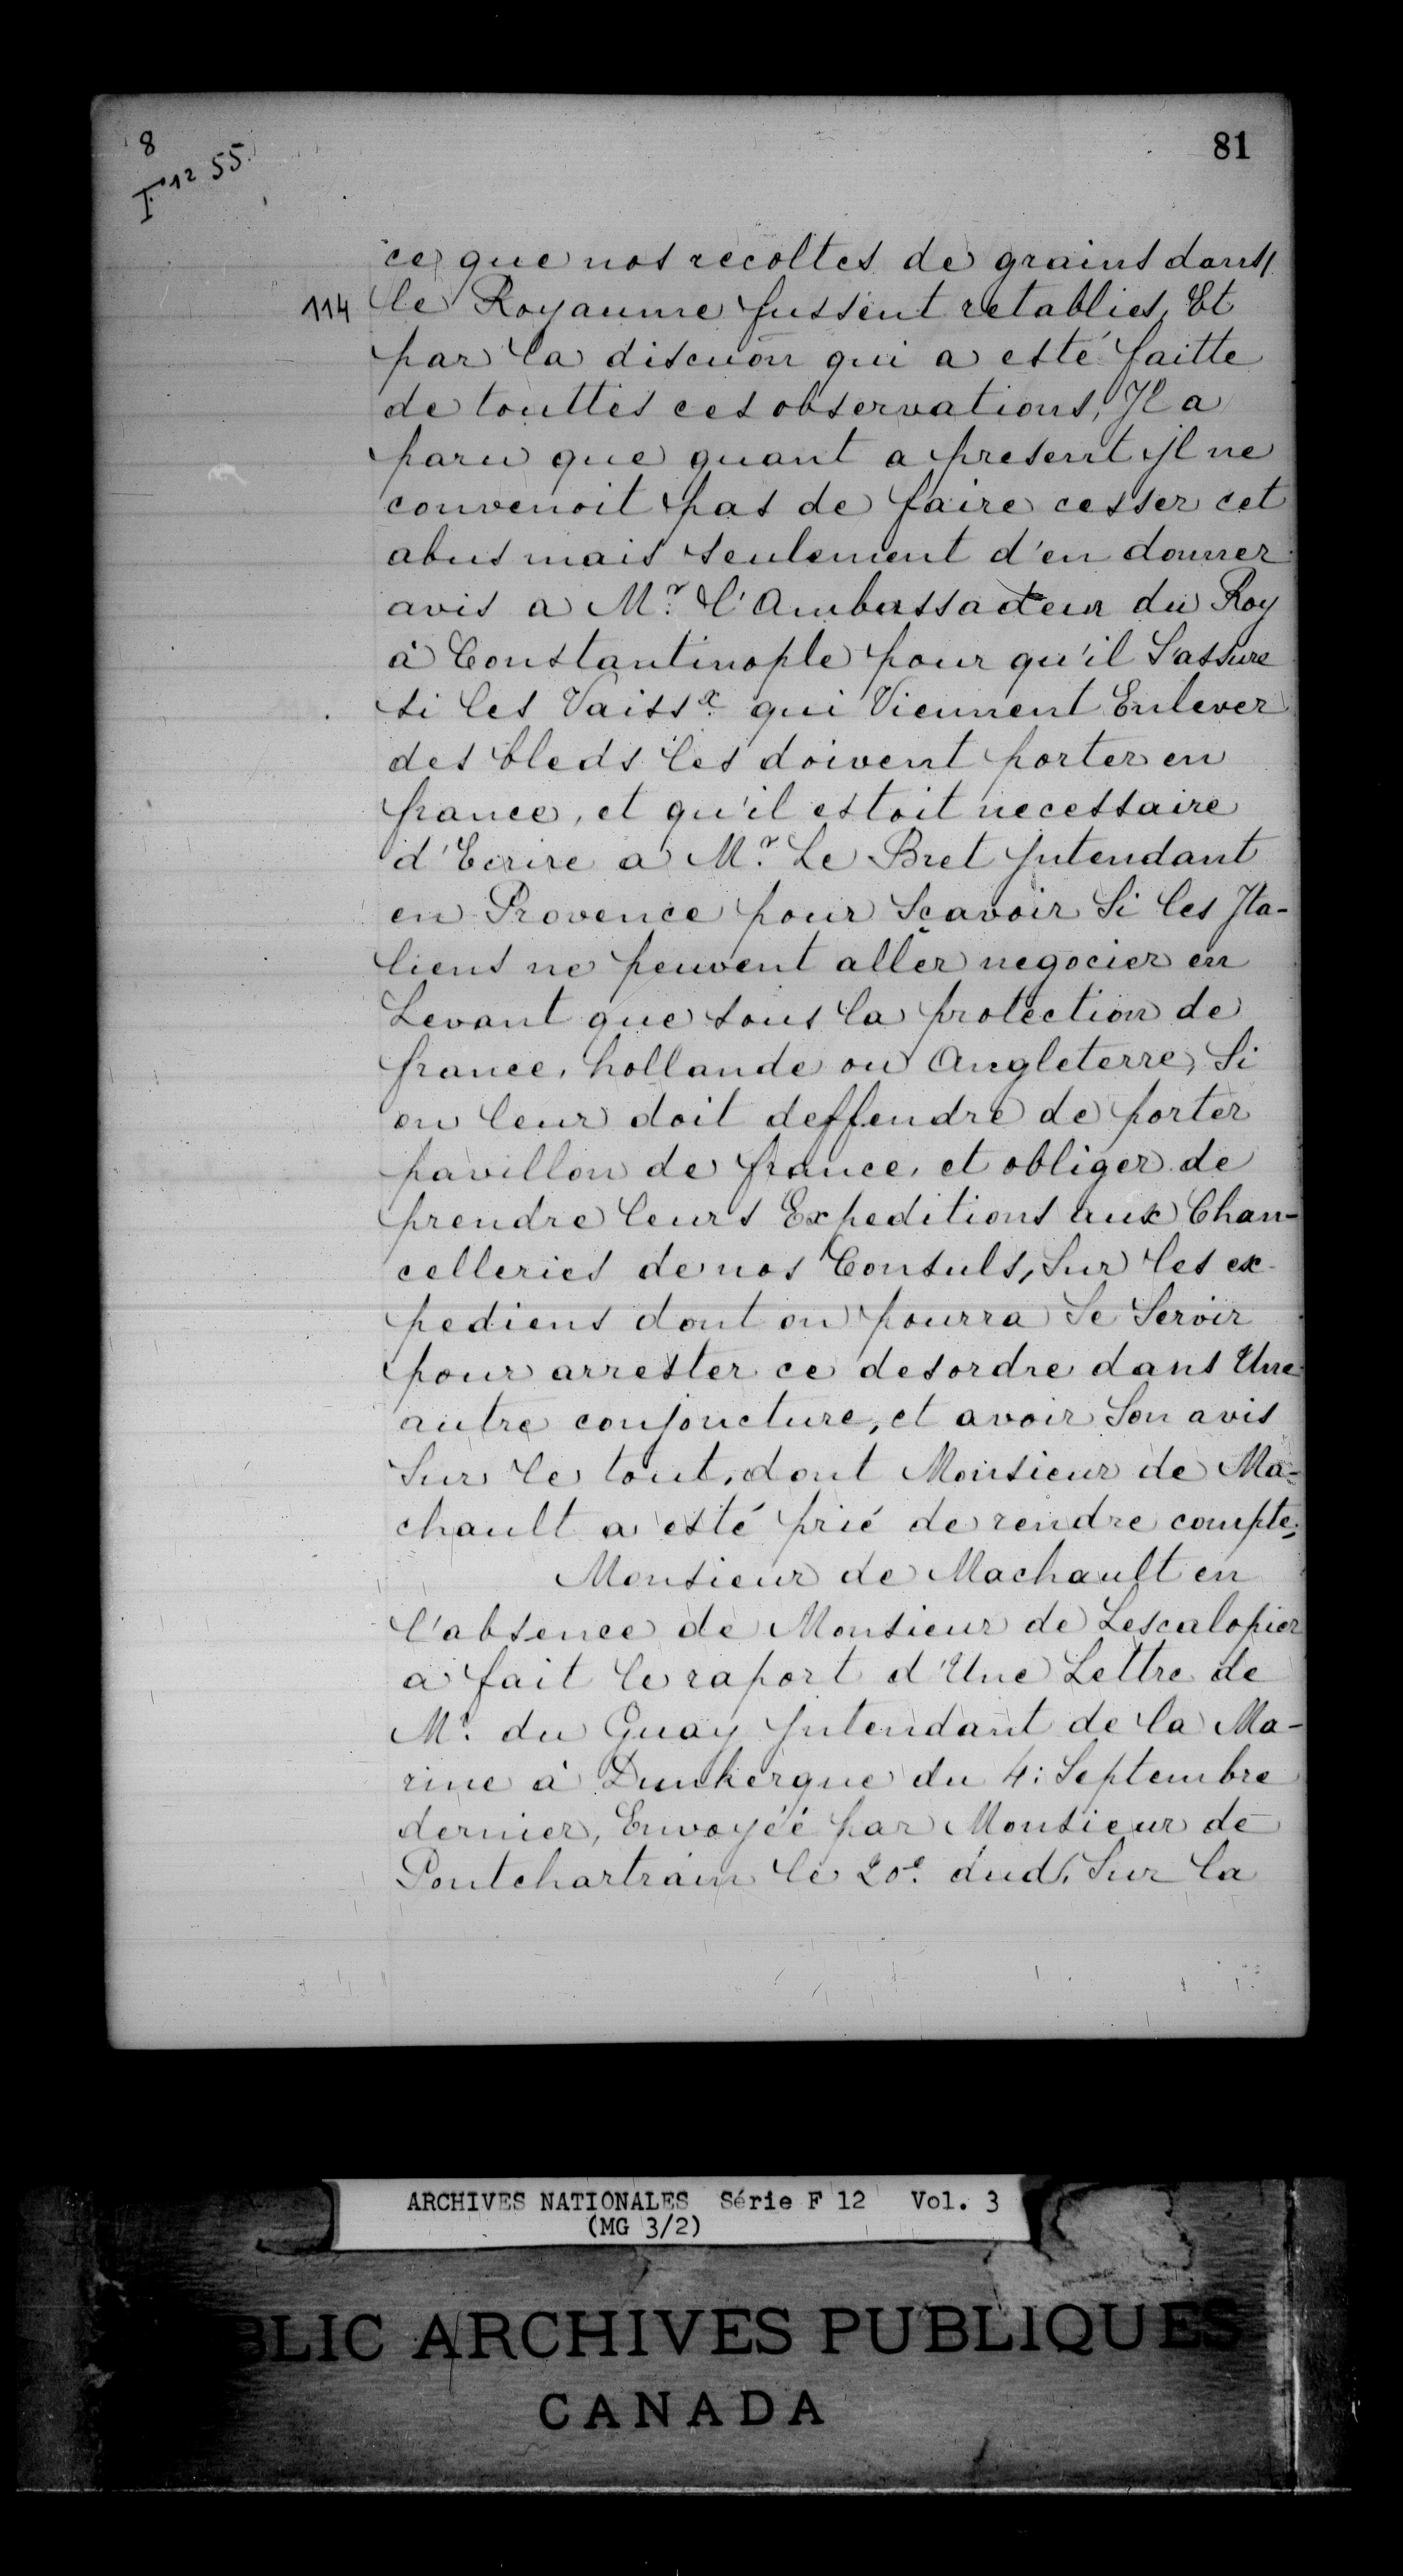 8
F 12 55.
81
ce que nos recoltes de grains dans
114 le Royaume fussent retablies, Et
par la discuõn qui a esté faitte
de touttes ces observations, Jl a
paru que quant a present jl ne
convenoit pas de faire cesser cet
abus mais seulement d'en donner
avis a Mr. l'Ambassadeur du Roy
à Constantinople pour qu'il S'assure
si les Vaissx. qui Viennent Enlever
des bleds les doivent porter en
france, et qu'il estoit necessaire
d'Ecrire a Mr. Le Bret Jntendant
en Provence pour Sçavoir Si les Jta-
liens ne peuvent aller negocier en
Levant que sous la protection de
france, hollande ou Angleterre, Si
on leur doit deffendre de porter
pavillon de france, et obliger de
prendre leurs Expeditions aux Chan-
celleries de nos Consuls, Sur les ex-
pediens dont on pourra Se Servir
pour arrester ce desordre dans Une
autre conjoncture, et avoir Son avis
Sur le tout, dont Monsieur de Ma-
chault a esté prié de rendre compte;
Monsieur de Machault en
l'absence de Monsieur de Lescalopier
a fait le raport d'Une Lettre de
Mr. du Guay Jntendant de la Ma-
rine à Dunkerque du 4: Septembre
dernier, Envoyéé par Monsieur de
Pontchartrain le 20e. dud, Sur la
ARCHIVES NATIONALES Série F 12 Vol. 3
(MG 3/2)
BLIC ARCHIVES PUBLIQUES
CANADA